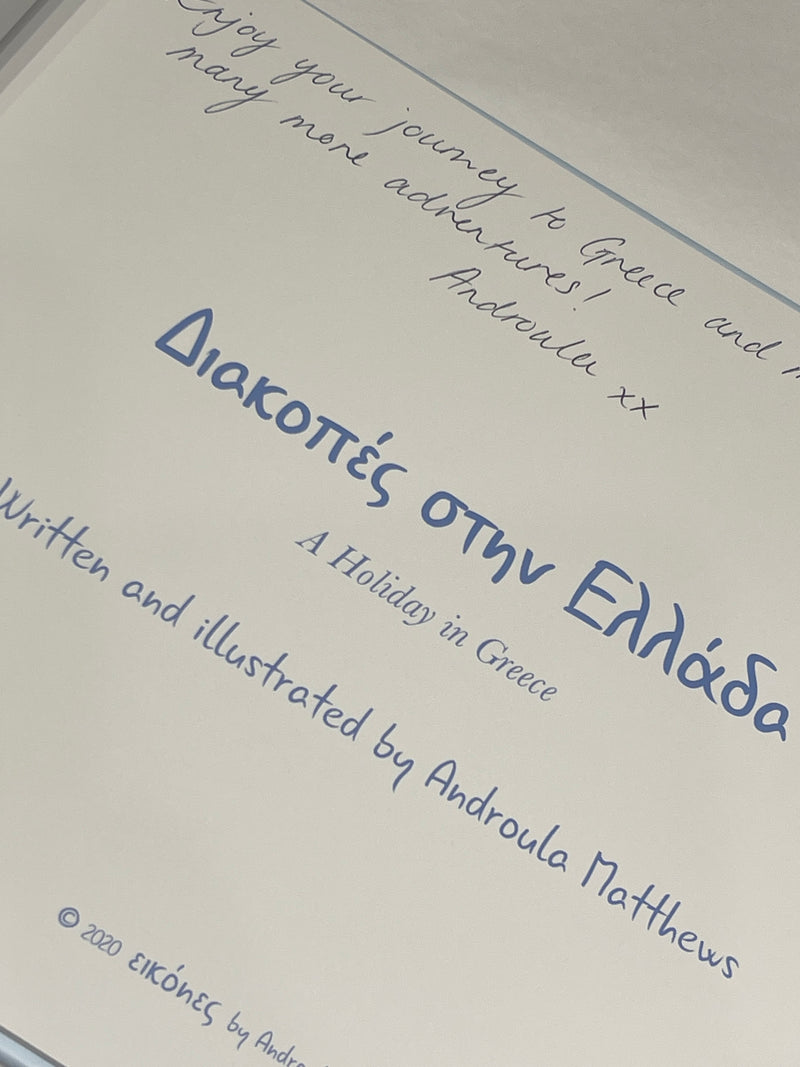 Enjoy your journey to Greece and
many more adventures!
Androula xx
Διακοπές στην Ελλάδα
A Holiday in Greece
Written and illustrated by Androula Matthews
© 2020 εικόνες by